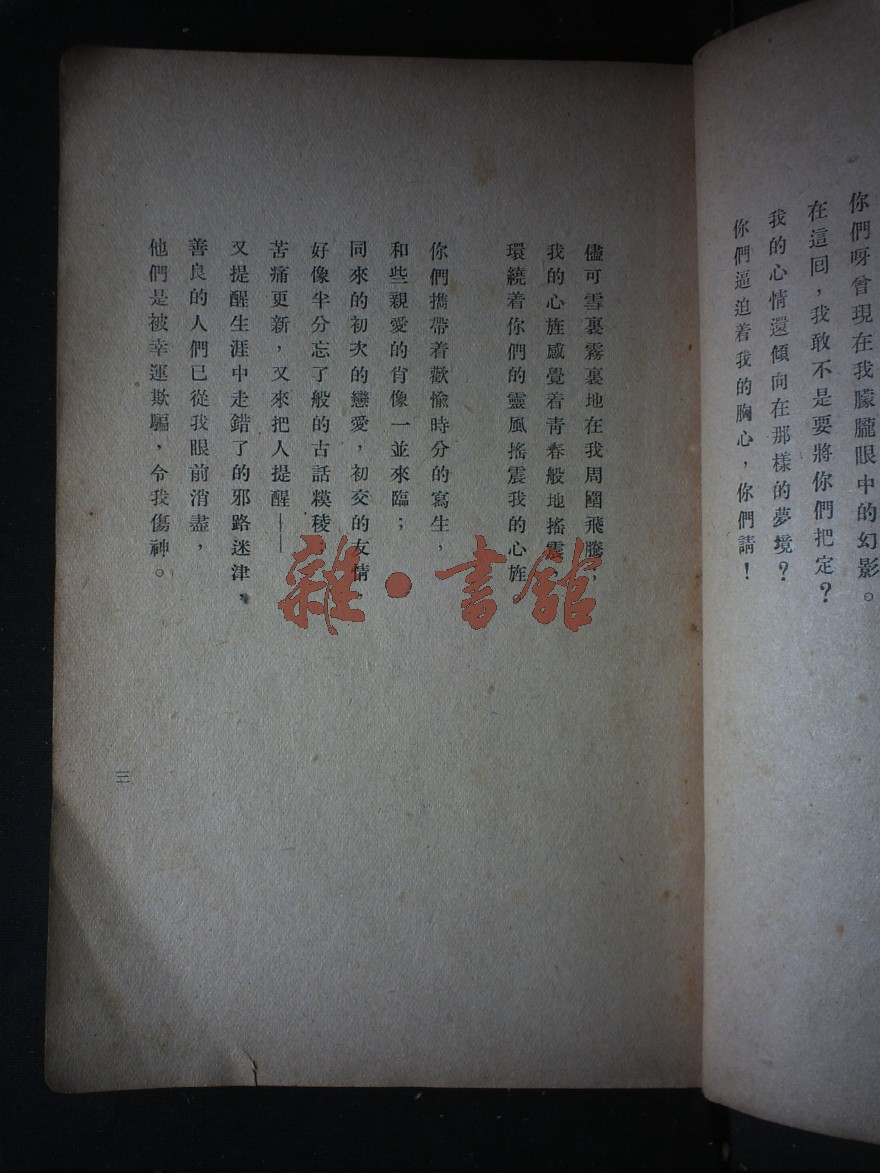 你們呀曾現在我朦朧眼中的幻影。
在這回，我敢不是要將你們把定？
我的心情還傾向在那樣的夢境？
你們逼迫着我的胸心，你們請！
儘可雪裏霧裏地在我周圍飛騰；
我的心旌感覺着青春般地搖震，
環繞着你們的靈風搖震我的心旌
你們攜帶着歡愉時分的寫生，
和些親愛的肖像一並來臨；
同來的初次的戀愛，初交的友情
好像半分忘了般的古話模稜，
苦痛更新，又來把人提醒——
又提醒生涯中走錯了的邪路迷津，
善良的人們已從我眼前消盡，
他們是被幸運欺騙，令我傷神。
三
雜·書館